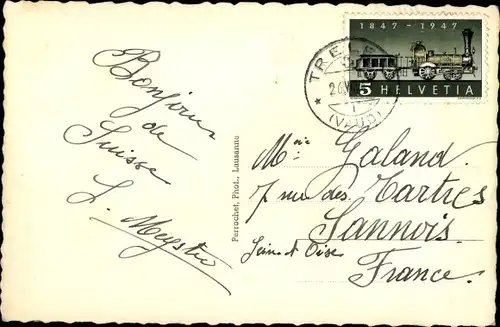 Bonjour
de
Suisse
Perrochet, Phot., Lausanne
1847 - 1947
5 HELVETIA
TRE
(VAUD)
Galand.
7 rue des Tartres
Sannois
Seine et Oise
France.